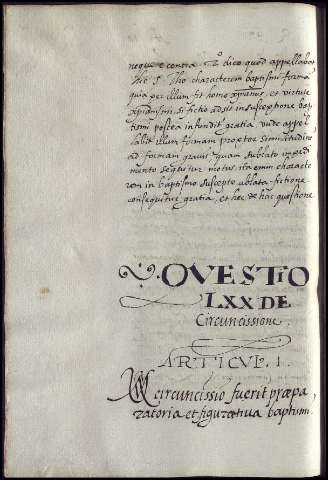 neque e contra. 2º dico quod appellabat
Tho characterem baptismi forma
quia per illum fit homo xpianus, et virtute
xpianismi, si fictio adsit in susceptione bap
tismi postea infundit gratia unde appel
labit illum formam propter similitudine
ad formam gravis quam sublato impedi
mento sequitur motus, ita enim characte
rem in baptismo suscepto ablata fictione
consequitur gratia, et hec de hac questione
QVESTIO
LXX DE
Circuncissione.
ARTICVL. 1.
circuncissio fuerit præpa
ratoria et figurativa baptismi.